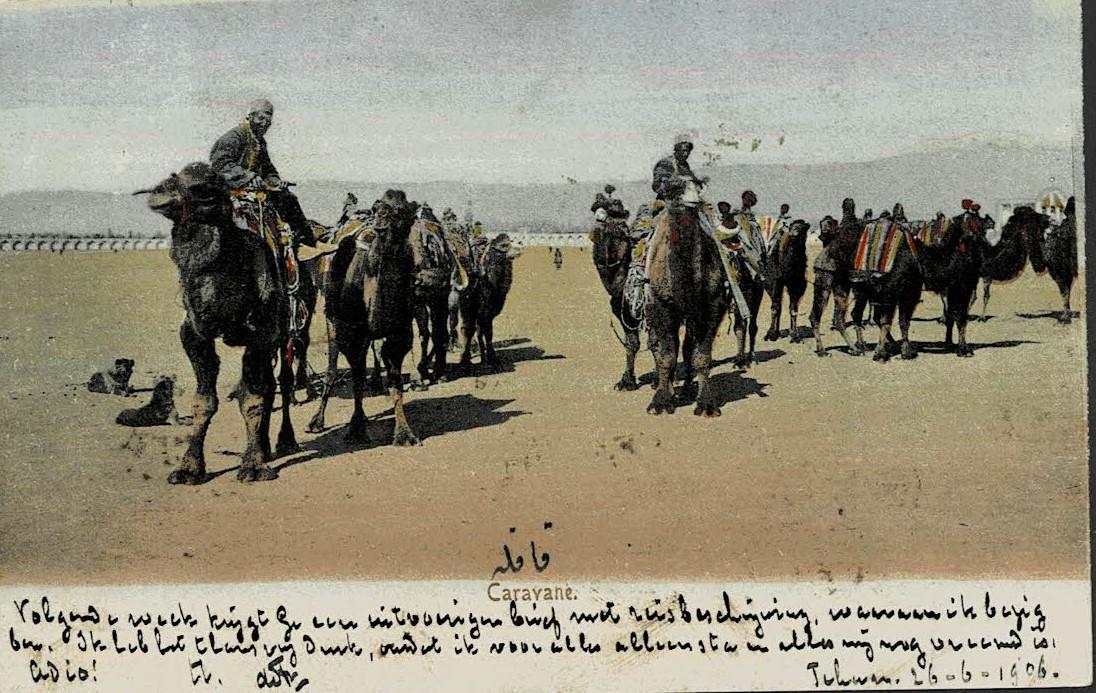 قافله
Caravane.
Volgende week krijgt Ge een uitvoerigen brief met reisbeschrijving, waaraan ik bezig
ben. Ik heb het thans vrij druk, omdat ik voor alles alleen sta en alles mij nog vreemd is.
Adio! tt.
Teheran. 26-6-1906.